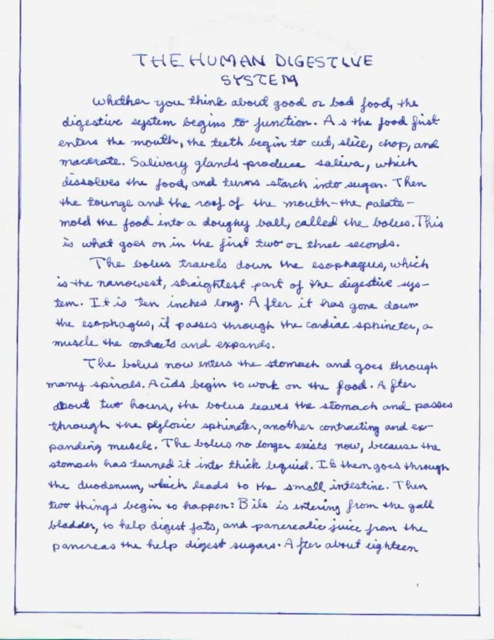 THE HUMAN DIGESTIVE
SYSTEM
Whether you think about good or bad food, the
digestive system begins to function. As the food first
enters the mouth, the teeth begin to cut, slice, chop, and
macerate. Salivary glands produce saliva, which
dissolves the food, and turns starch into sugar. Then
the tounge and the roof of the mouth-the palate-
mold the food into a doughy ball, called the bolus. This
is what goes on in the first two or three seconds.
The bolus travels down the esophagus, which
is the narrowest, straightest part of the digestive sys-
tem. It is ten inches long. After it has gone down
the esophagus, it passes through the cardiac sphincter, a
muscle the contracts and expands.
The bolus now enters the stomach and goes through
many spirals. Acids begin to work on the food. After
about two hours, the bolus leaves the stomach and passes
through the pyloric sphincter, another contracting and ex-
panding muscle. The bolus no longer exists now, because the
stomach has turned it into thick liquid. It then goes through
the duodenum, which leads to the small intestine. Then
two things begin to happen: Bile is entering from the gall
bladder, to help digest fats, and pancreatic juice from the
pancreas the help digest sugars. After about eighteen